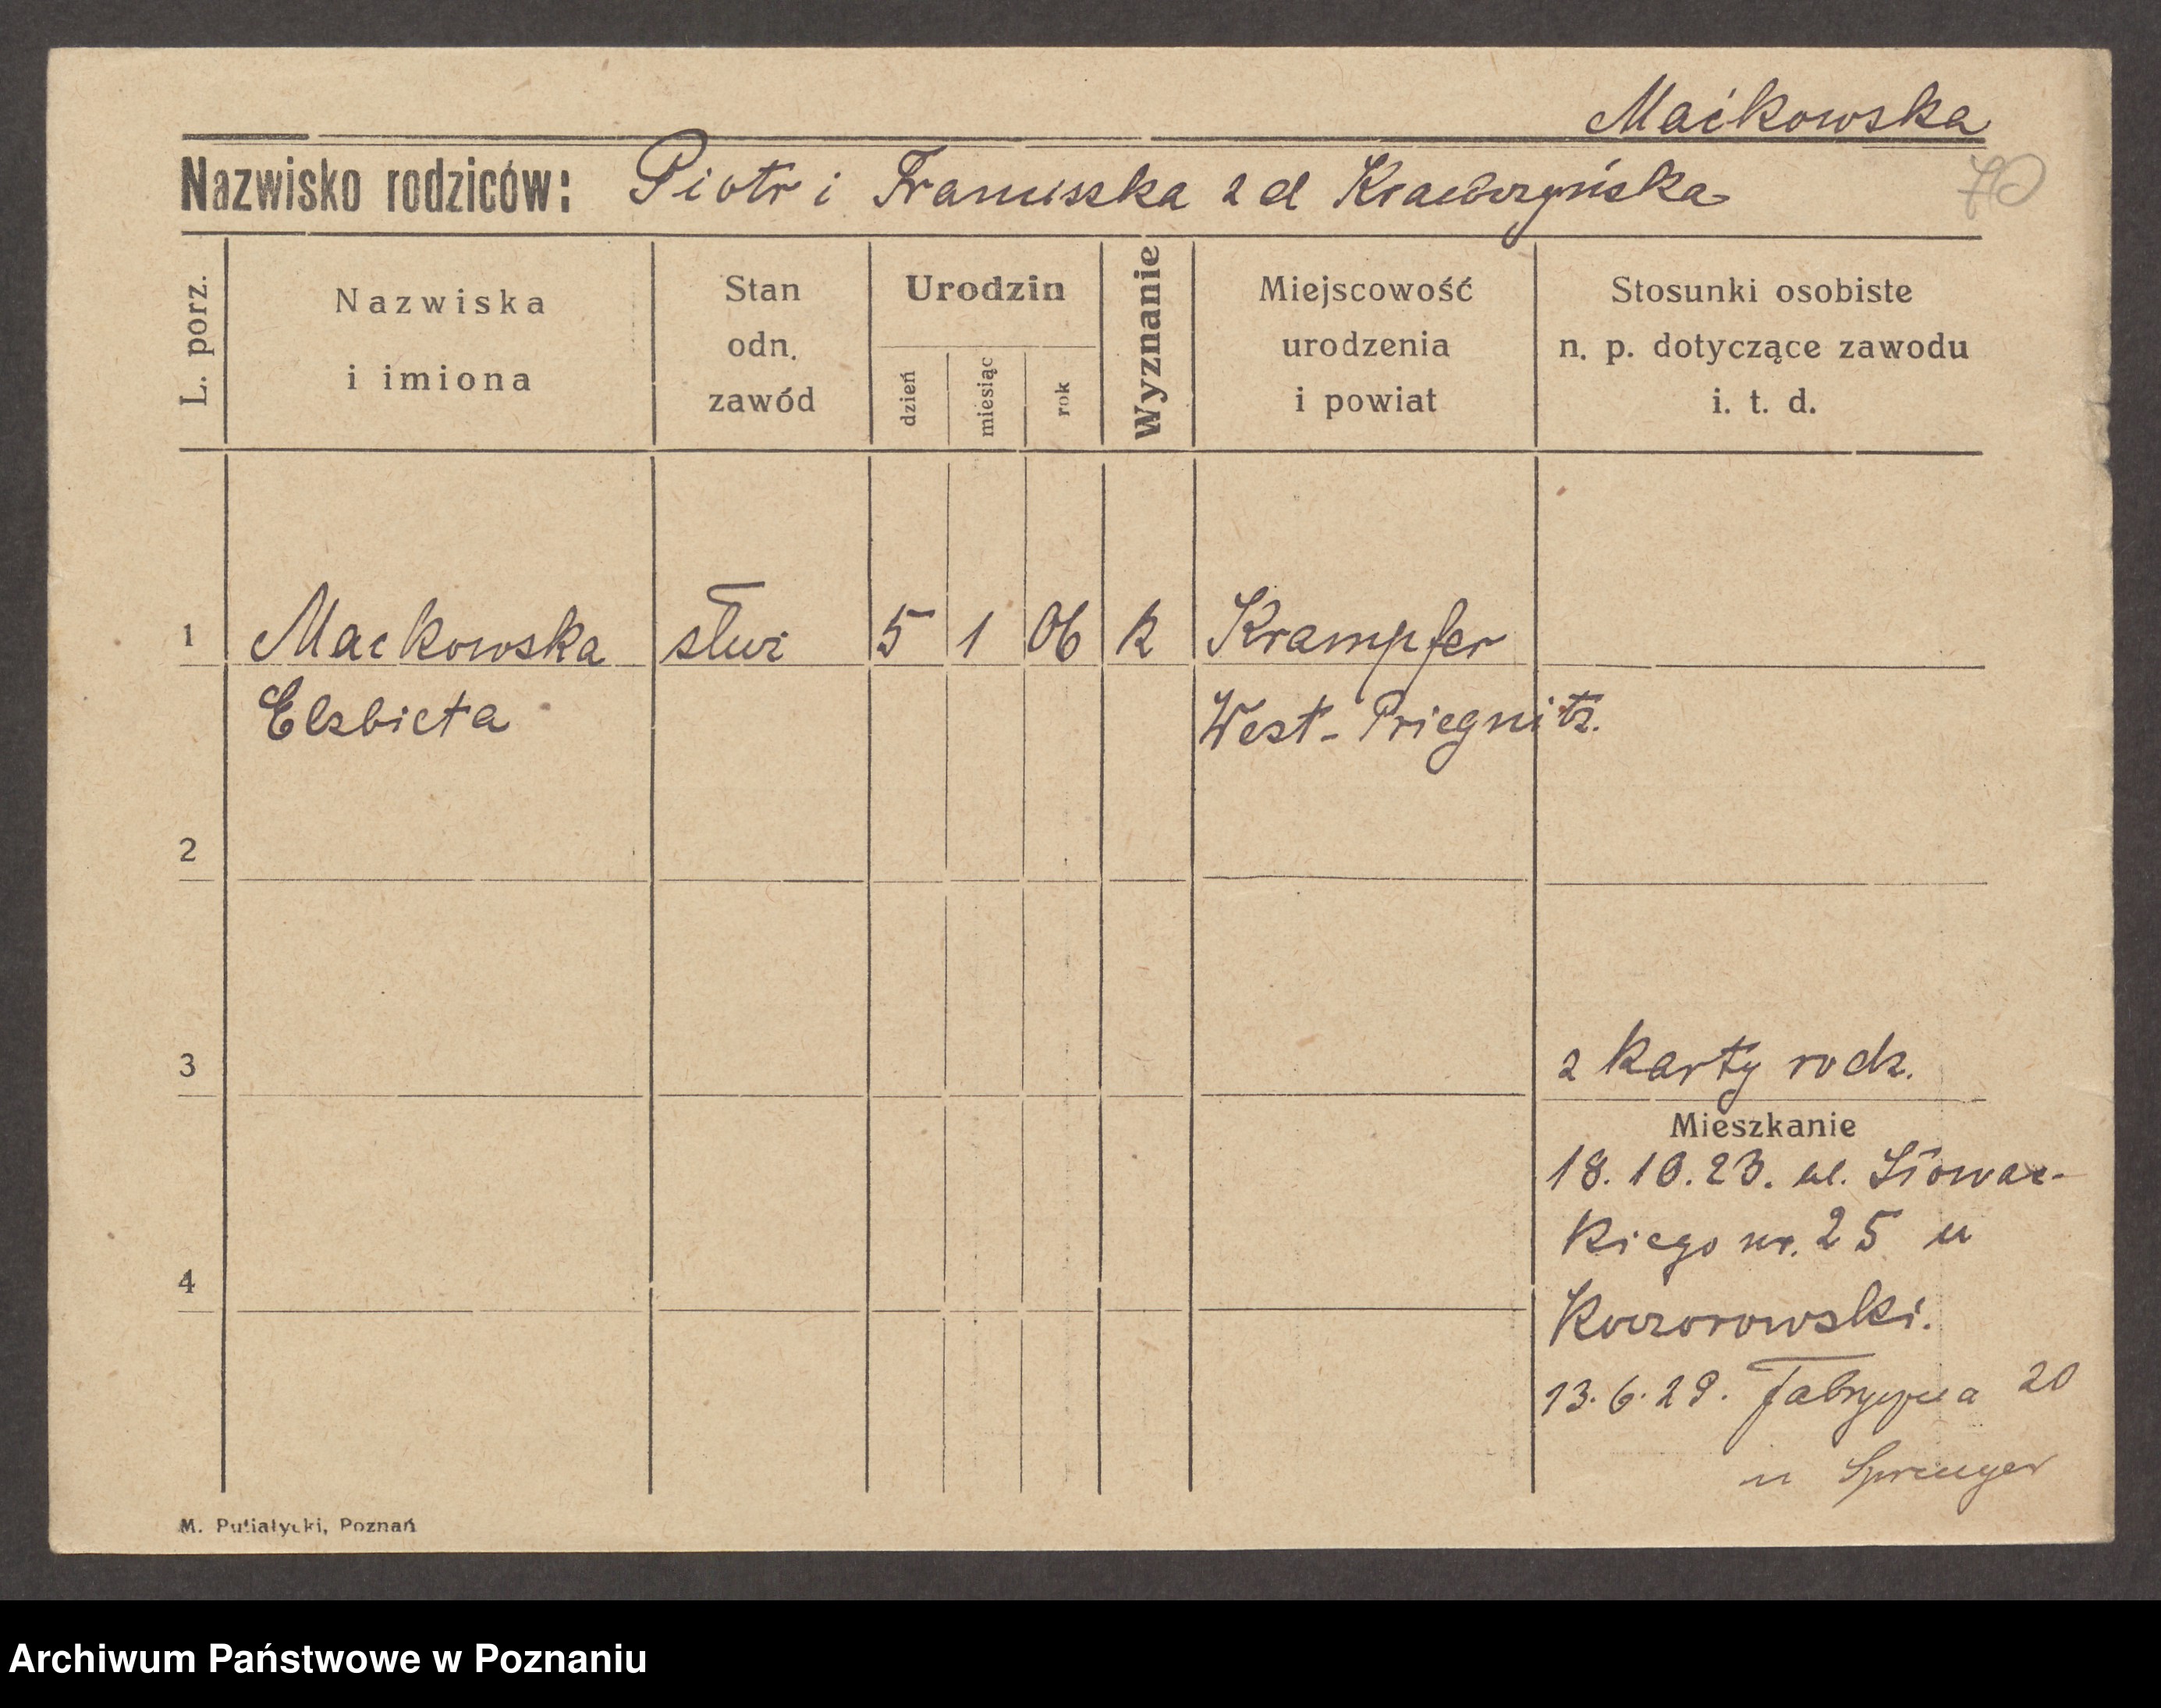 Maćkowska
Nazwisko rodziców: Piotr i Franciszka z d Krawczyńska
70
L. porz.
Nazwiska
i imiona
Stan
odn.
zawód
Urodzin
dzień
miesiąc
rok
Wyznanie
Miejscowość
urodzenia
i powiat
Stosunki osobiste
n. p. dotyczące zawodu
i. t. d.
1 Mackowska służ 5 1 06 k Krampfer
Elzbieta West-Priegnitz.
2
3 z karty rodz.
Mieszkanie
18.10.23. ul. Słowac-
kiego nr. 25 u
4
Koczorowski.
13.6.29. Fabryczna 20
u Sprenger
M. Putiatycki, Poznań
Archiwum Państwowe w Poznaniu